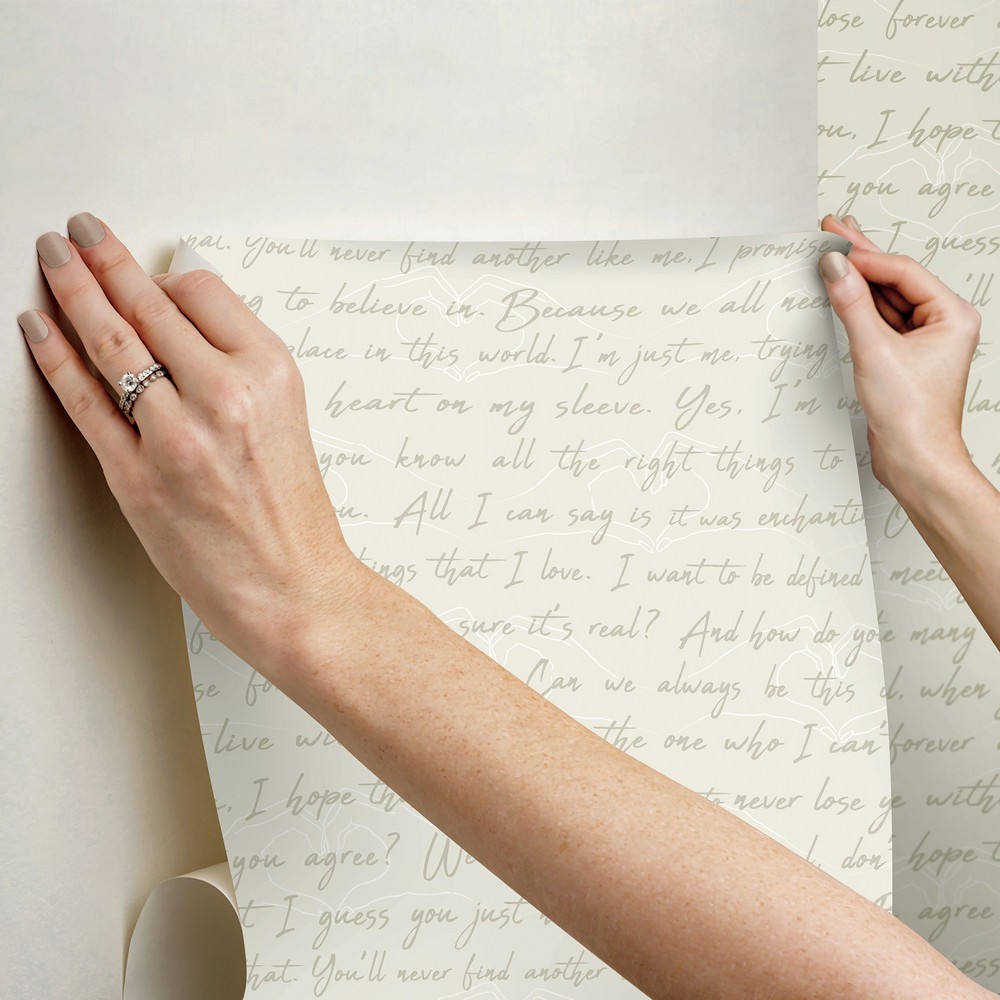 lose forever
live with
I hope
you agree
I guess
You'll never find another like me, I promise
to believe in. Because we all need
place in this world. I'm just me, trying
heart on my sleeve. Yes, I'm
you know all the right things to
All I can say is it was enchanti
that I love. I want to be defined meet
sure it's real? And how do yo many
Can we always be this d, when
live the one who I can't forever
I hope to never lose ye with
you agree? don' hope
I guess you just agree
that. You'll never find another